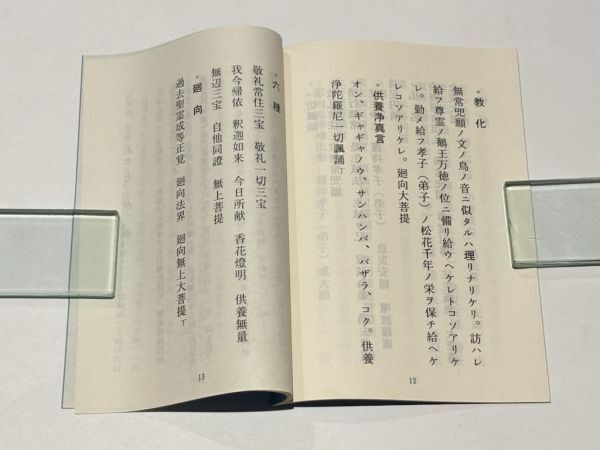 ・教化
無常呪願ノ文ノ鳥ノ音ニ似タルハ理リナリケリ。訪ハレ
給フ尊霊ノ鵝王万徳ノ位ニ備リ給ウヘケレトコソアリケ
レ。勤メ給フ孝子(弟子)ノ松花千年ノ栄ヲ保チ給ヘケ
レコソアリケレ。廻向大菩提
・供養浄真言
オン、ギャギャノウ、サンハンバ、バザラ、コク。供養
浄陀羅尼一切諷誦丁
12
・六種
敬礼常住三宝 敬礼一切三宝
我今帰依 釈迦如来 今日所献 香花燈明 供養無量
無辺三宝 自他同證 無上菩提
・廻向
過去聖霊成等正覚 廻向法界 廻向無上大菩提丁
13